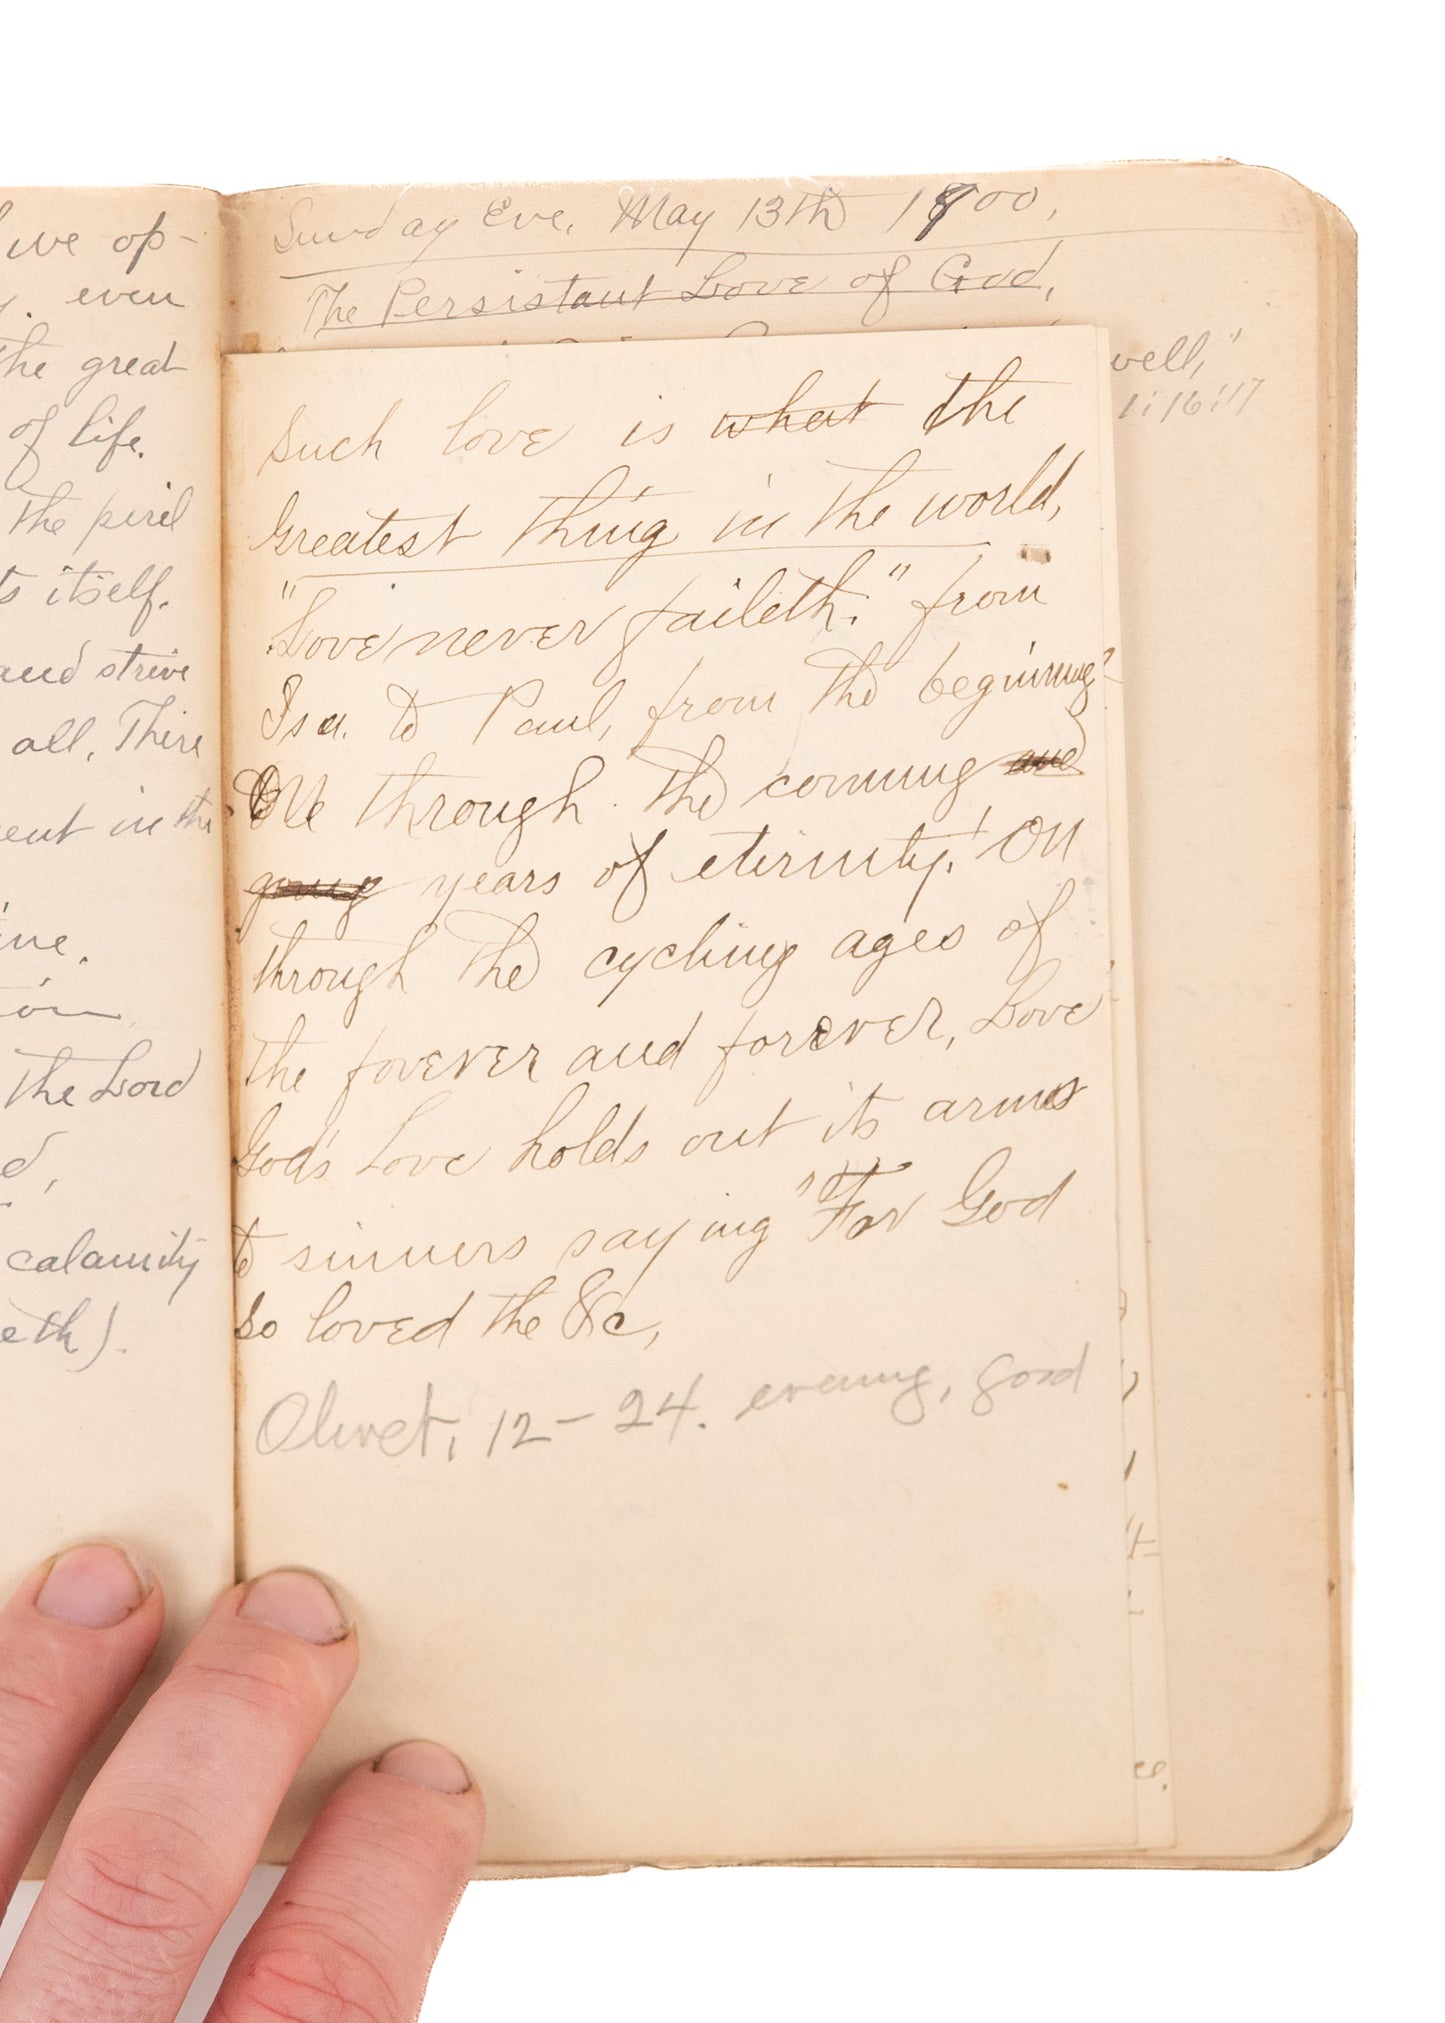 we op-
even
the great
of life.
the peril
ts itself.
and strive
all. There
ent in the
ine.
the Lord
calamity
eth).
Sunday Eve. May 13th 1900,
The Persistant Love of God,
well,"
1:16:17
Such love is what the
Greatest thing in the world,
"Love never faileth." from
Isa. to Paul, from the beginning
on through the coming and
going years of eternity! On
through the cycling ages of
the forever and forever, Love
God's Love holds out its arms
to sinners saying "For God
so loved the &c,
Olivet, 12-24. evening, good